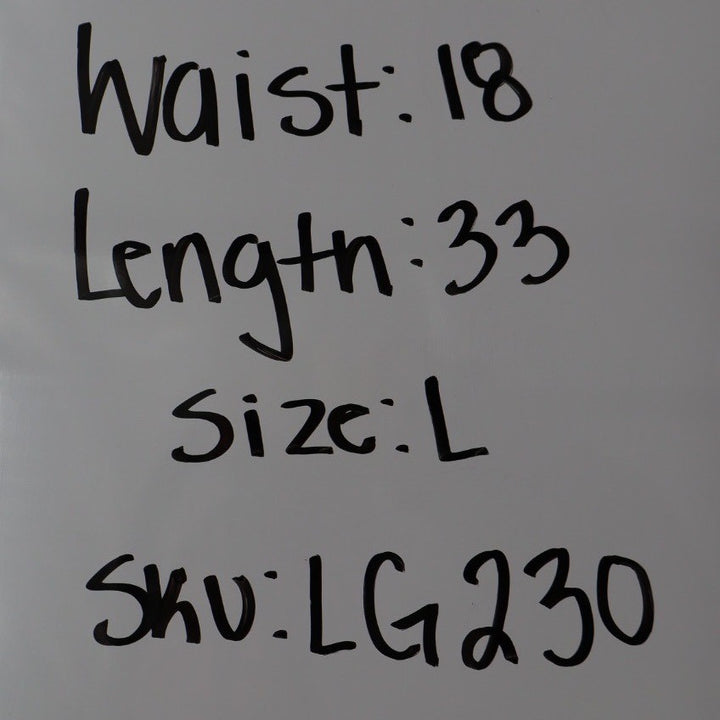 Waist: 18
Length: 33
Size: L
SKU: LG230